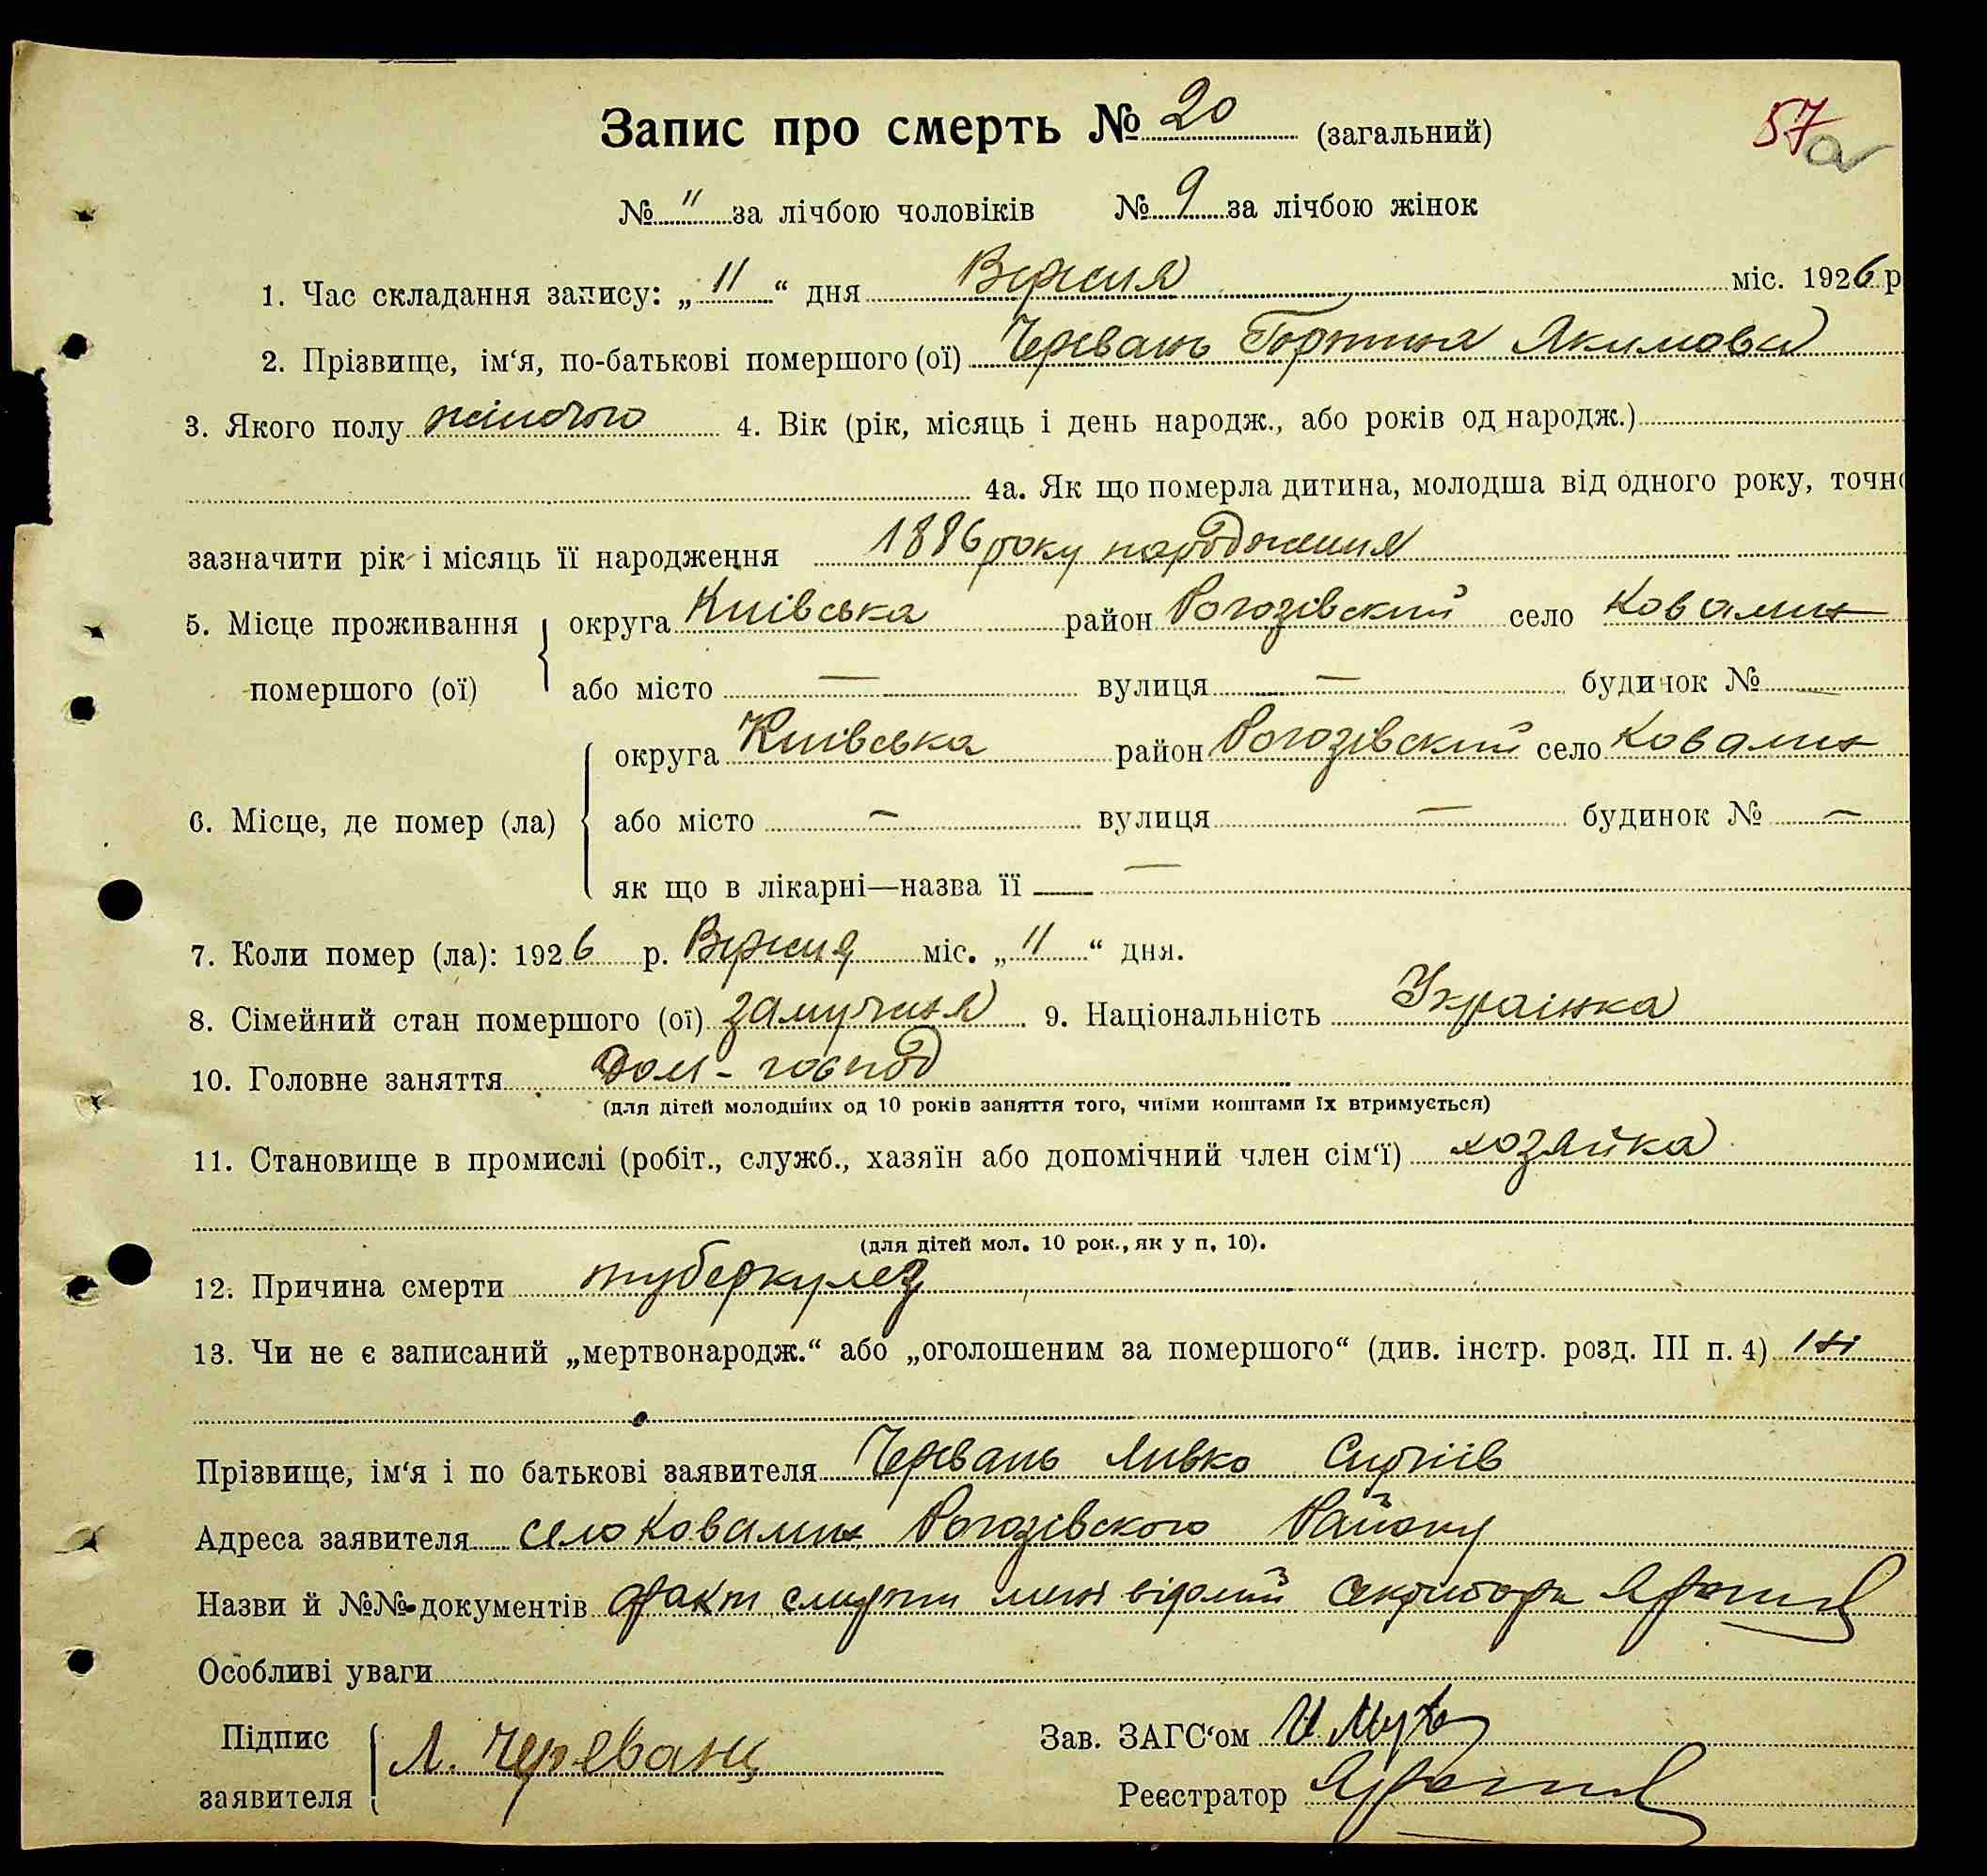 Запис про смерть № 20 (загальний)
57a
№ " за лічбою чоловіків № 9 за лічбою жінок
1. Час складання запису: „11“ дня Вересня міс. 1926 р
2. Прізвище, ім‘я, по-батькові помершого (ої) Черевань Горпина Якимовна
3. Якого полу жіночого 4. Вік (рік, місяць і день народж., або років од народж.)
4а. Як що померла дитина, молодша від одного року, точно
зазначити рік і місяць її народження 1886 року народження
5. Місце проживання помершого (ої) округа Київська район Рогозівский село Ковалин
або місто — вулиця — будинок № —
6. Місце, де помер (ла) округа Київська район Рогозівский село Ковалин
або місто — вулиця — будинок № —
як що в лікарні—назва її —
7. Коли помер (ла): 1926 р. Вересня міс. „11“ дня.
8. Сімейний стан помершого (ої) замужня 9. Національність Українка
10. Головне заняття дом-господ
(для дітей молодших од 10 років заняття того, чиїми коштами їх втримується)
11. Становище в промислі (робіт., служб., хазяїн або допомічний член сім‘ї) хозяйка
(для дітей мол. 10 рок., як у п. 10).
12. Причина смерти туберкулез
13. Чи не є записаний „мертвонародж.“ або „оголошеним за помершого“ (див. інстр. розд. III п. 4) ні
Прізвище, ім‘я і по батькові заявителя Черевань Левко Сергіів
Адреса заявителя село Ковалин Рогозівского Району
Назви й №№ документів факт смерти мені відомий секритарь
Особливі уваги
Підпис заявителя Л. Черевань
Зав. ЗАГС‘ом
Реєстратор